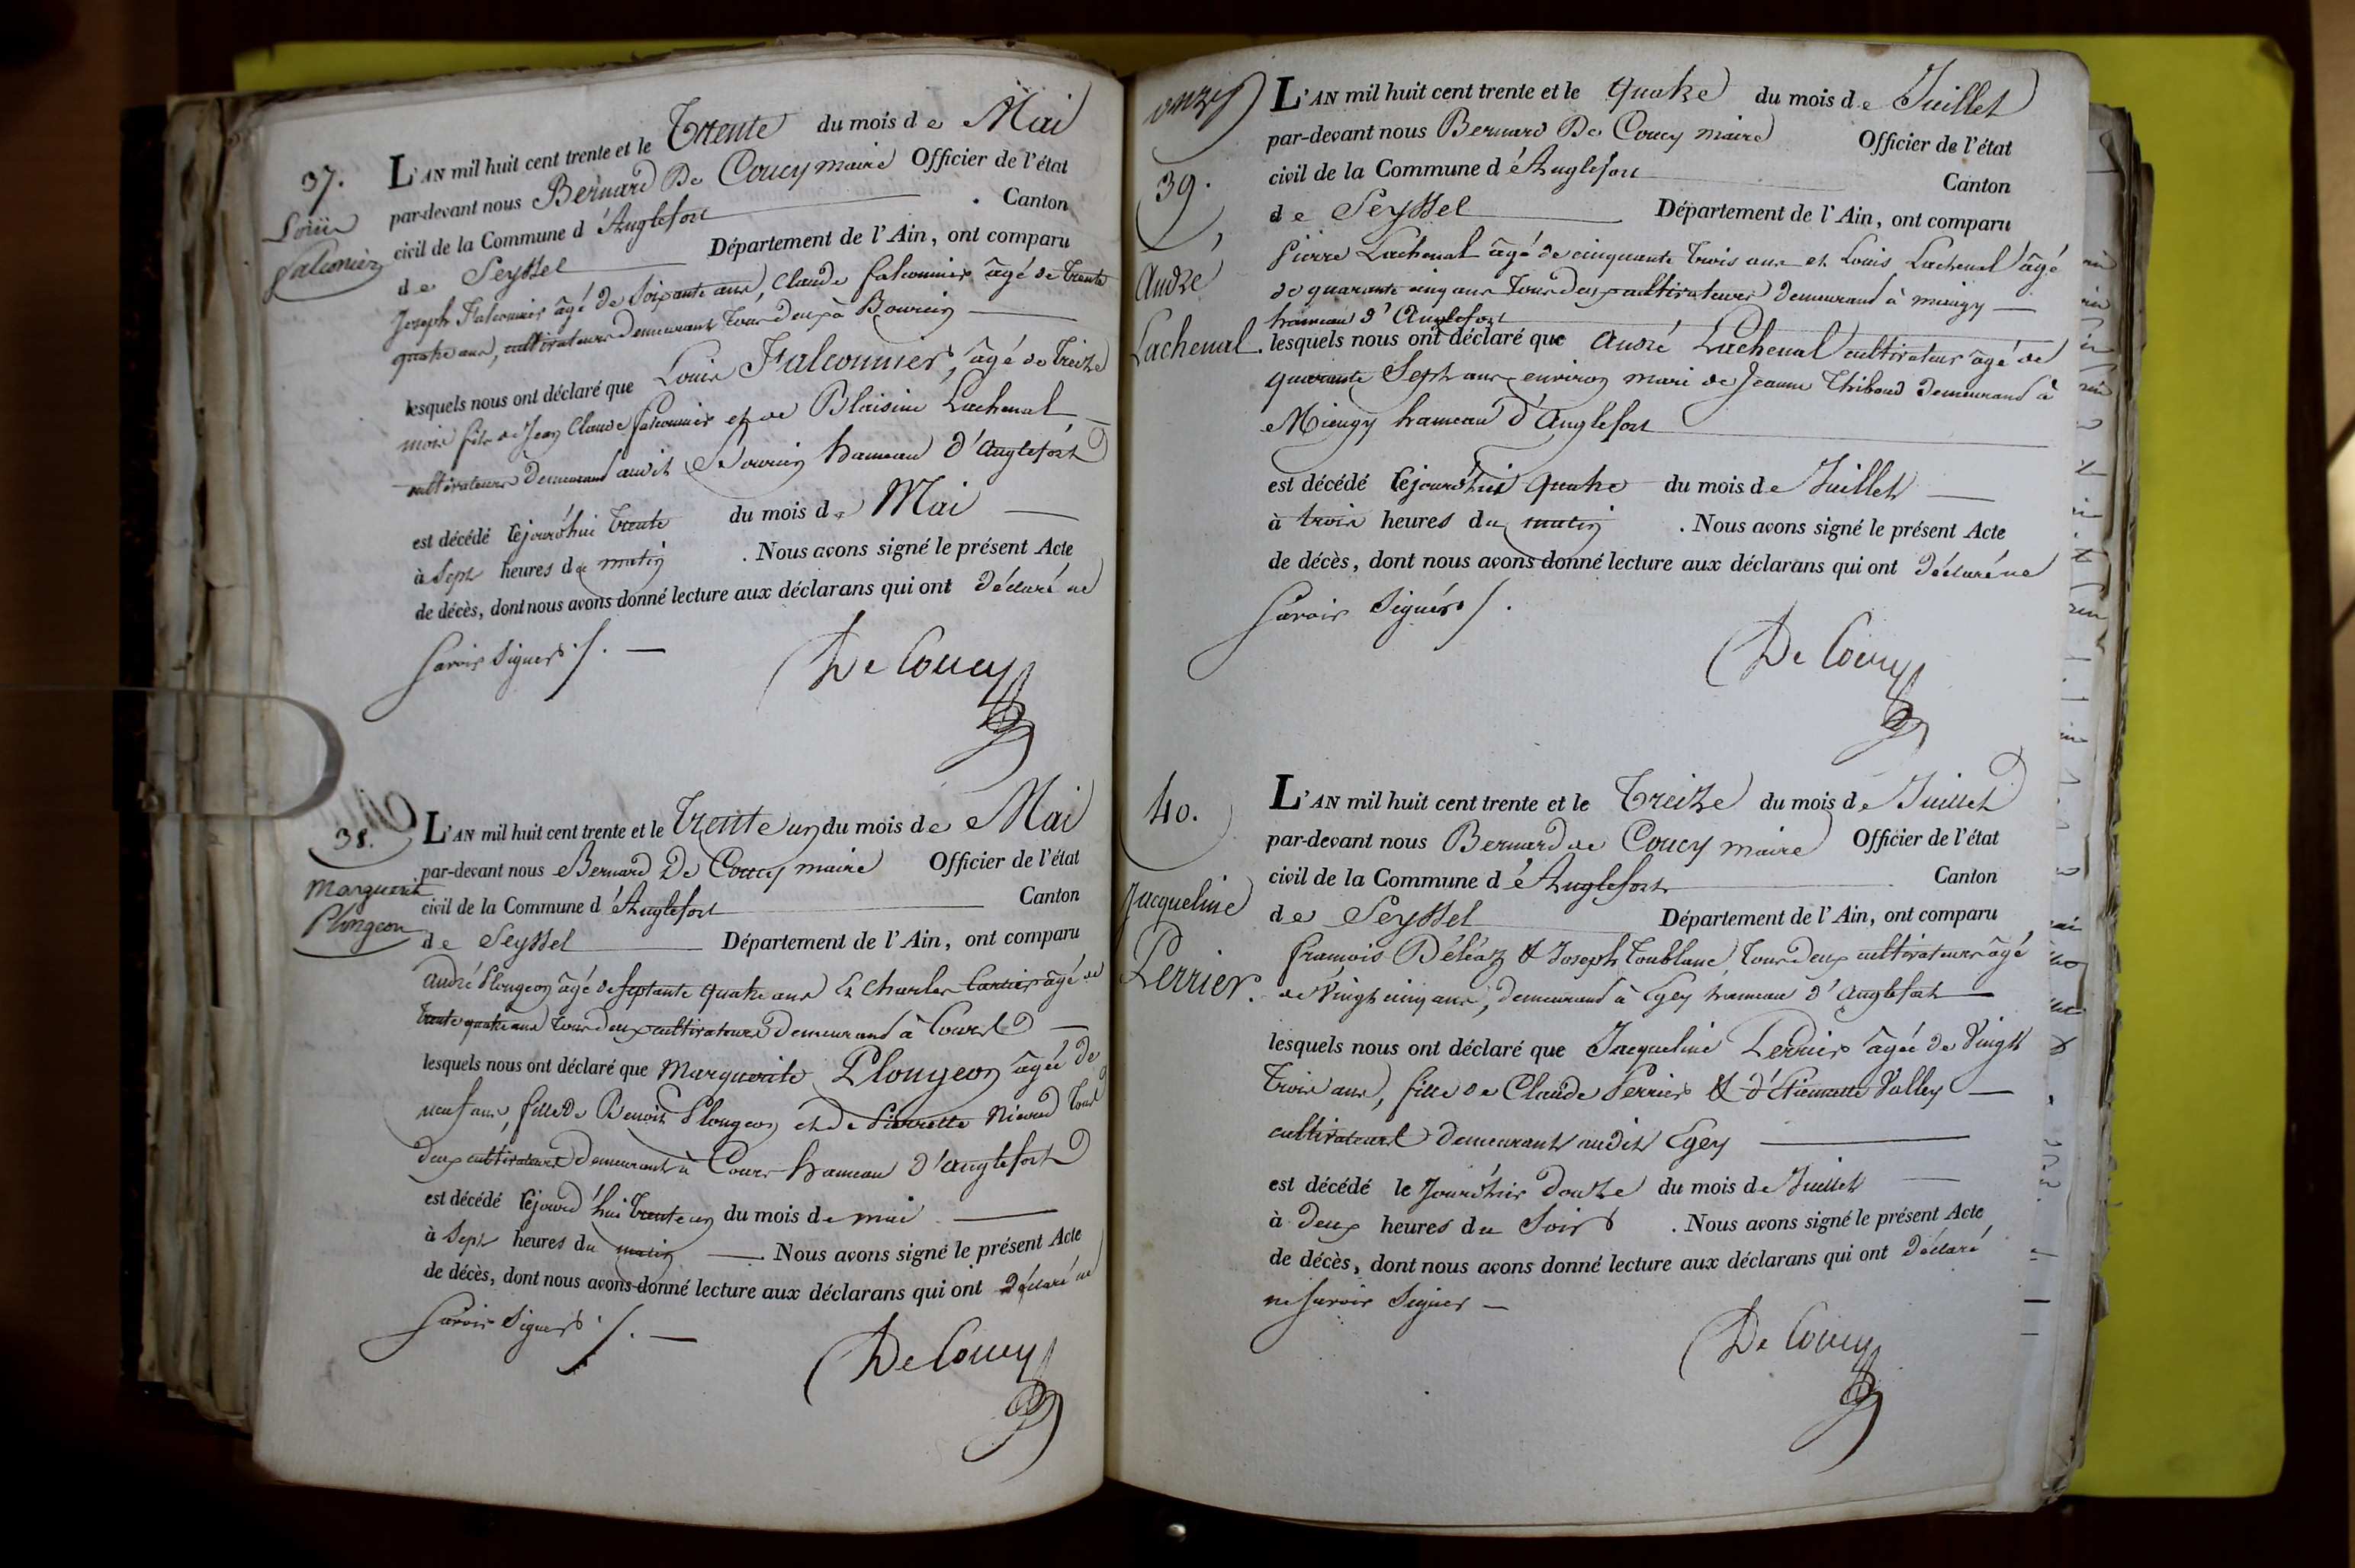 37.
Louis
Falconier
L'AN mil huit cent trente et le Trente du mois de Mai
par-devant nous Bernard De Coucy maire Officier de l'état
civil de la Commune d'Anglefort Canton
de Seyssel Département de l'Ain, ont comparu
Joseph Falconnier âgé de soixante ans, Claude falconnier âgé de trente
quatre ans, cultivateurs demeurant tous deux à
lesquels nous ont déclaré que Louis Falconnier, âgé de treize
mois fils de Jean Claude falconnier et de Blaisine Lachenal
cultivateurs demeurant audit hameau d'anglefort
est décédé cejourd'hui trente du mois de Mai
à sept heures du matin . Nous avons signé le présent Acte
de décès, dont nous avons donné lecture aux déclarans qui ont déclaré ne
savoir signer ./. —
De Coucy
38.
Marguerite
Plongeon
L'AN mil huit cent trente et le Trente un du mois de Mai
par-devant nous Bernard De Coucy maire Officier de l'état
civil de la Commune d'Anglefort Canton
de Seyssel Département de l'Ain, ont comparu
André Plongeon âgé de septante quatre ans Et Charles Cartier âgé de
trente quatre ans tous deux cultivateurs demeurand à Cours
lesquels nous ont déclaré que Marguerite Plongeon âgée de
neuf ans, fille de Benoit Plongeon et de Pierrette tous
deux cultivateurs demeurant à Cours hameau d'anglefort
est décédé cejourd'hui trente un du mois de mai
à sept heures du matin — . Nous avons signé le présent Acte
de décès, dont nous avons donné lecture aux déclarans qui ont déclaré ne
savoir signer ./. —
De Coucy
onze
39.
André
Lachenal.
L'AN mil huit cent trente et le quatre du mois de Juillet
par-devant nous Bernard De Coucy maire Officier de l'état
civil de la Commune d'Anglefort Canton
de Seyssel Département de l'Ain, ont comparu
Pierre Lachenal âgé de cinquante trois ans et Louis Lachenal âgé
de quarante cinq ans tous deux cultivateurs demeurand à mieugy —
hameau d'Anglefort
lesquels nous ont déclaré que André Lachenal cultivateur âgé de
quarante Sept ans environ mari de Jeanne Thiboud demeurand à
Mieugy hameau d'Anglefort
est décédé cejourd'hui quatre du mois de Juillet —
à trois heures du matin . Nous avons signé le présent Acte
de décès, dont nous avons donné lecture aux déclarans qui ont déclaré ne
savoir signer ./.
De Coucy
40.
Jacqueline
Perrier.
L'AN mil huit cent trente et le Treize du mois de Juillet
par-devant nous Bernard de Coucy maire Officier de l'état
civil de la Commune d'Anglefort Canton
de Seyssel Département de l'Ain, ont comparu
françois Déléaz & Joseph Toublanc, tous deux cultivateurs âgé
de Vingt cinq ans, demeurand à Egey hameau d'anglefort —
lesquels nous ont déclaré que Jacqueline Perrier âgée de Vingt
trois ans, fille de Claude Perrier & d'Etiennette Valley —
cultivateurs demeurant audit Egey —
est décédé le Jourd'hier douze du mois de Juillet —
à deux heures du Soir . Nous avons signé le présent Acte
de décès, dont nous avons donné lecture aux déclarans qui ont déclaré
ne savoir signer —
De Coucy